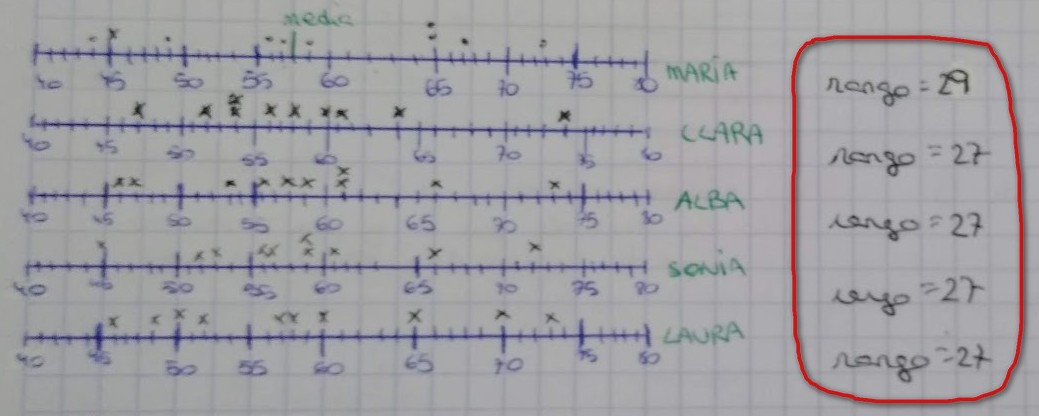 media
40 45 50 55 60 65 70 75 80 MARÍA
rango = 29
40 45 50 55 60 65 70 75 80 CLARA
rango = 27
40 45 50 55 60 65 70 75 80 ALBA
rango = 27
40 45 50 55 60 65 70 75 80 SONIA
rango = 27
40 45 50 55 60 65 70 75 80 LAURA
rango = 27